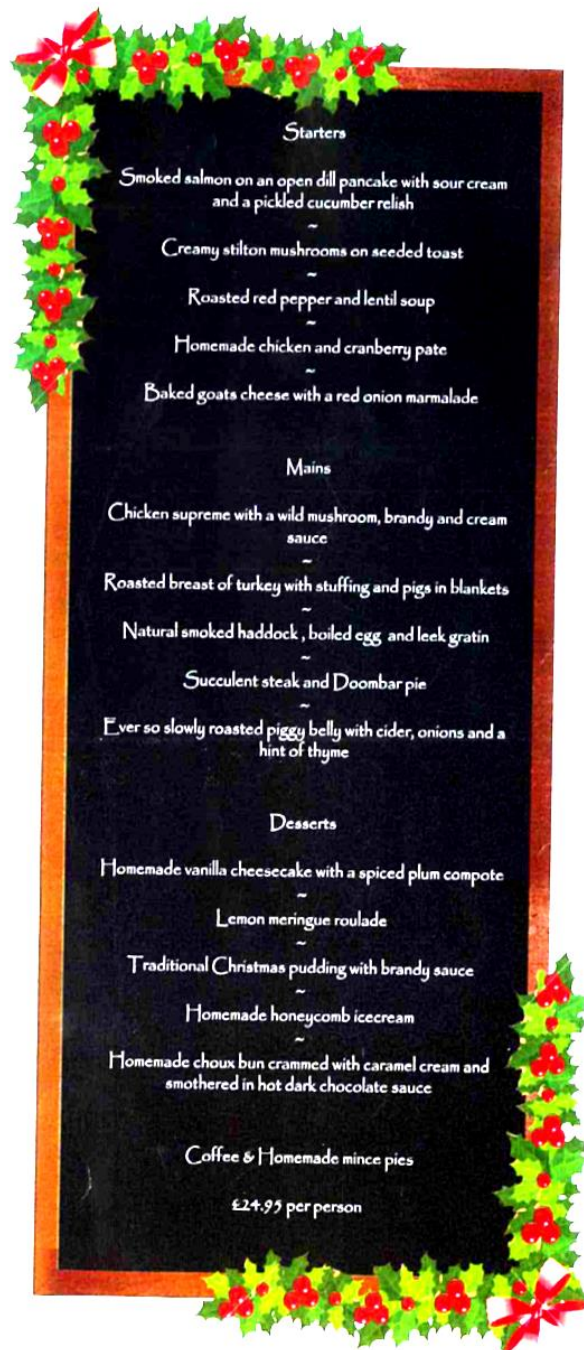 Starters
Smoked salmon on an open dill pancake with sour cream
and a pickled cucumber relish
~
Creamy stilton mushrooms on seeded toast
~
Roasted red pepper and lentil soup
~
Homemade chicken and cranberry pate
~
Baked goats cheese with a red onion marmalade
Mains
Chicken supreme with a wild mushroom, brandy and cream
sauce
~
Roasted breast of turkey with stuffing and pigs in blankets
~
Natural smoked haddock , boiled egg and leek gratin
~
Succulent steak and Doombar pie
~
Ever so slowly roasted piggy belly with cider, onions and a
hint of thyme
Desserts
Homemade vanilla cheesecake with a spiced plum compote
~
Lemon meringue roulade
~
Traditional Christmas pudding with brandy sauce
~
Homemade honeycomb icecream
~
Homemade choux bun crammed with caramel cream and
smothered in hot dark chocolate sauce
Coffee & Homemade mince pies
£24.95 per person